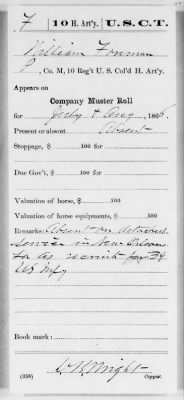 F 10 H. Art'y. U.S.C.T.
William Forman
P, Co. M, 10 Reg't U.S. Col'd H. Art'y.
Appears on
Company Muster Roll
for July & Aug, 1866
Present or absent Absent
Stoppage, $ 100 for
Due Gov't, $ 100 for
Valuation of horse, $ 100
Valuation of horse equipments, $ 100
Remarks: Absent on detached
service in New Orleans
La as recruit for 39
US Infy
Book mark:
Wright
(358) Copyist.